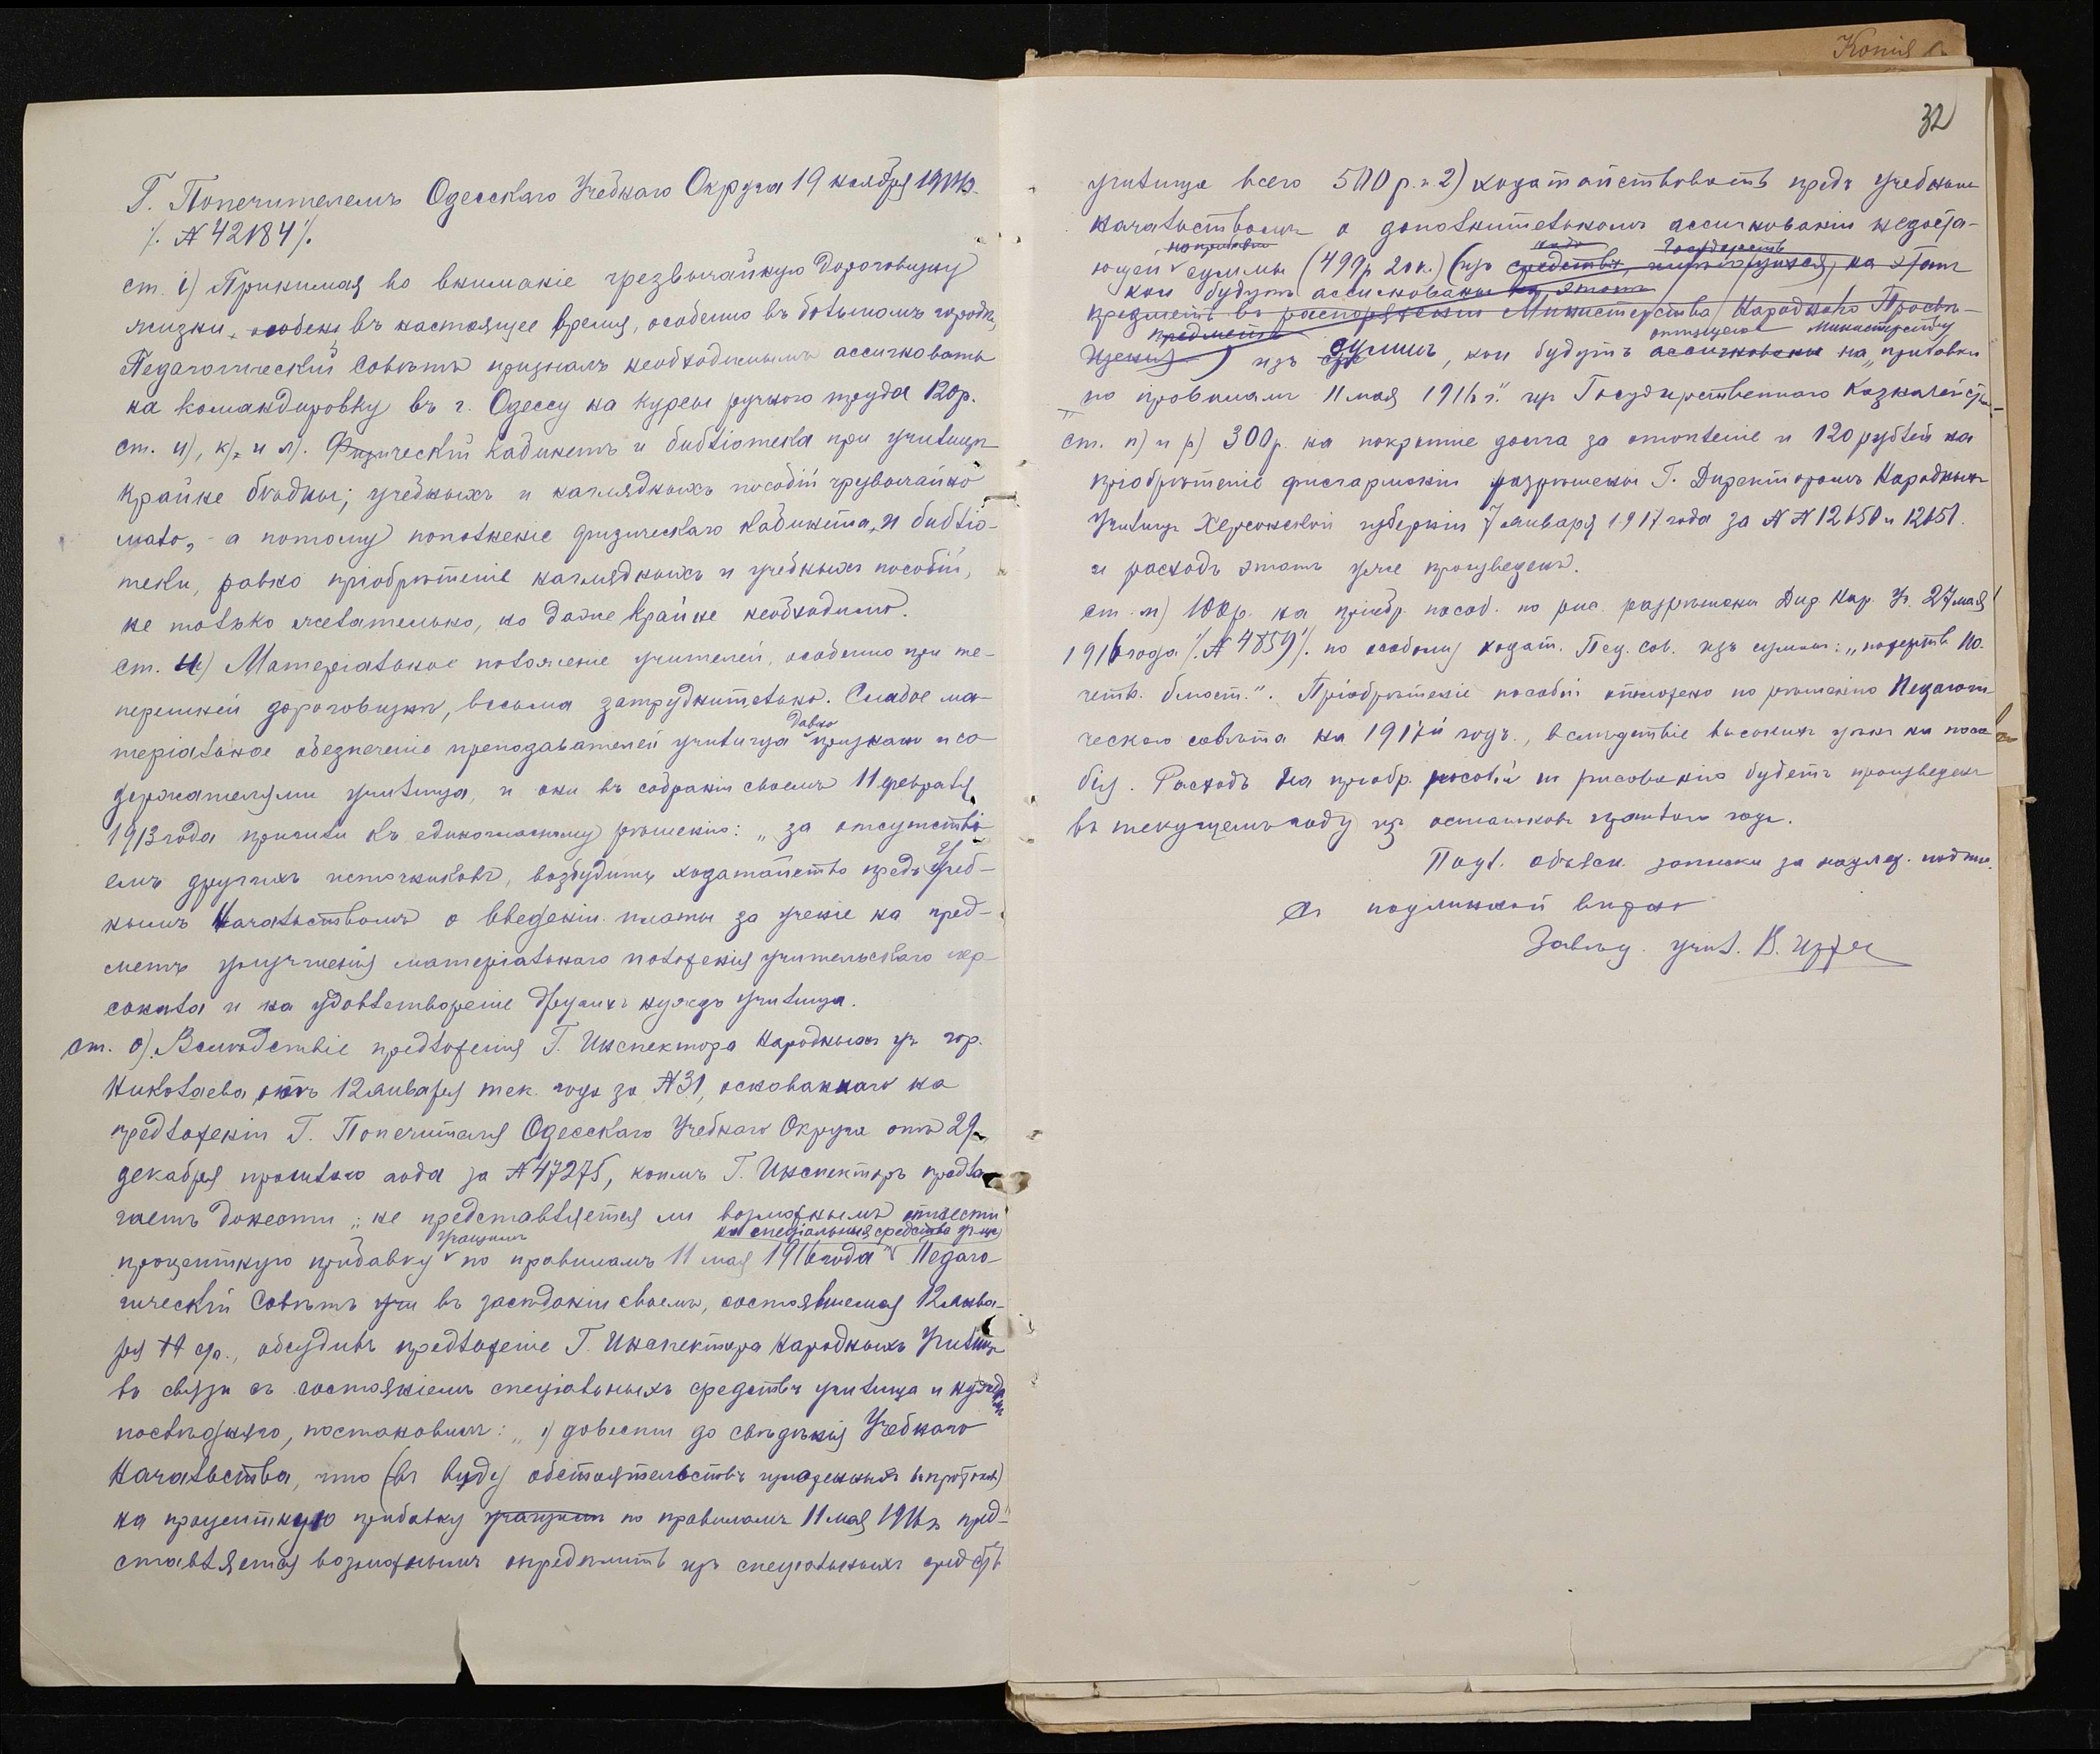 Копія
32
Г. Попечителемъ Одесскаго Учебнаго Округа 19 ноября
№ 42184
ст. і) Принимая во вниманіе чрезвычайную дороговизну
жизни, особен въ настоящее время, особенно въ большомъ городѣ,
Педагогическій Совѣтъ призналъ необходимымъ ассигновать
на командировку въ г. Одессу на курсы ручного труда 120 р.
ст. и), к), и л). Физическій кабинетъ и библіотека при училищѣ
крайне бѣдны; учебныхъ и наглядныхъ пособій чрезвычайно
мало, а потому пополненіе физическаго кабинета, и библіо-
теки, равно пріобрѣтеніе наглядныхъ и учебныхъ пособій,
не только желательно, но даже крайне необходимо.
ст. м) Матеріальное положеніе учителей, особенно при те-
перешней дороговизнѣ, весьма затруднительно. Слабое ма-
теріальное обезпеченіе преподавателей училища давно признано и со-
держателями училища, и они въ собраніи своемъ 11 февраля
1913 года пришли къ единогласному рѣшенію: „за отсутстві-
емъ другихъ источниковъ, возбудить ходатайство предъ Учеб-
нымъ Начальствомъ о введеніи платы за ученіе на пред-
метъ улучшенія матеріальнаго положенія учительскаго пер-
сонала и на удовлетвореніе другихъ нуждъ училища.
ст. о). Вслѣдствіе предложенія Г. Инспектора Народныхъ уч. гор.
Николаева отъ 12 января тек. года за №31, основаннаго на
предложеніи Г. Попечителя Одесскаго Учебнаго Округа отъ 29
декабря прошлаго года за № 47275, коимъ Г. Инспекторъ предла-
гаетъ донести, не представляется ли возможнымъ отнести
учащимъ на спеціальныя средства уч-ща
процентную прибавку по правиламъ 11 мая 1916 года Педаго-
гическій Совѣтъ учи въ засѣданіи своемъ, состоявшемся 12 янва-
ря, обсудивъ предложеніе Г. Инспектора Народныхъ Училищъ
въ связи съ состояніемъ спеціальныхъ средствъ училища и нуждъ
послѣдняго, постановилъ: „1) довести до свѣдѣнія Учебнаго
Начальства, что (въ виду обстоятельствъ изложенныхъ въ протоколѣ)
на процентную прибавку учащимъ по правиламъ 11 мая 1916 г. пред-
ставляется возможнымъ опредѣлить изъ спеціальныхъ средствъ
училища всего 500 р. и 2) ходатайствовать предъ учебнымъ
начальствомъ о дополнительномъ ассигнованіи недоста-
на прибавки Государств
ющей суммы (499 р. 20 к.) (изъ средствъ, на этотъ
кои будутъ ассигнованы на этотъ
предметъ въ распоряженіи Министерства Народнаго Просвѣ-
предметъ отпущены Министерству
щенія) изъ суммъ, кои будутъ ассигнованы на „прибавки
по правиламъ 11 мая 1916 г.“ изъ Государственнаго Казначейства
ст. п) и р) 300 р. на покрытіе долга за отопленіе и 120 рублей на
пріобрѣтеніе фисгармоніи разрѣшены Г. Директоромъ Народныхъ
Училищъ Херсонской губерніи 7 января 1917 года за №№ 12650 и 12651.
и расходъ этотъ уже произведенъ.
100 р. на пріобр. пособ. по рис. разрѣшены Дир. Нар. Уч. 27 мая
1916 года № 4859 по особому ходат. Пед. сов. изъ суммы: „пожертв. По-
четн. блюст.“. Пріобрѣтеніе пособій отложено по рѣшенію Педагоги-
ческаго совѣта на 1917й годъ, вслѣдствіе высокихъ цѣнъ на посо-
бія. Расходъ на пріобр. пособій по рисованію будетъ произведенъ
въ текущемъ году изъ остатковъ прошлаго года.
Подл. объясн. записки за надлеж. подпис.
Съ подлинной вѣрно
Завѣд. учил.